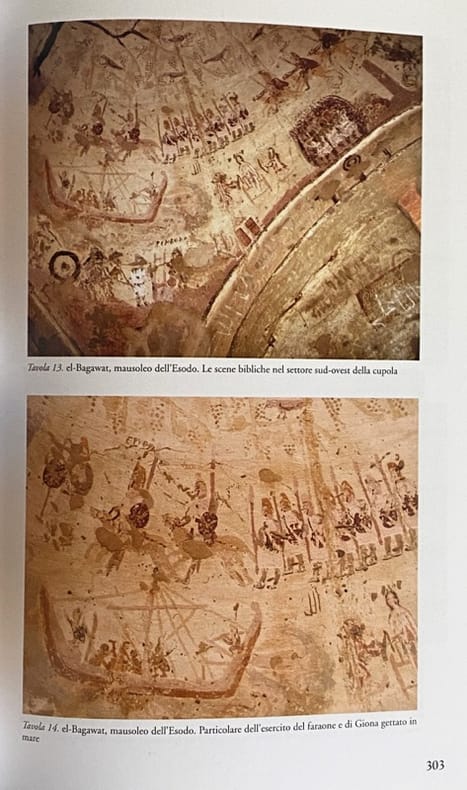 Tavola 13. el-Bagawat, mausoleo dell'Esodo. Le scene bibliche nel settore sud-ovest della cupola
Tavola 14. el-Bagawat, mausoleo dell'Esodo. Particolare dell'esercito del faraone e di Giona gettato in
mare
303